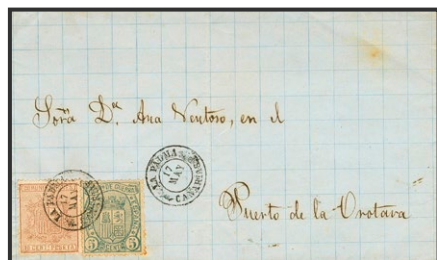 Sora Dª Ana Ventoso, en el
LA PALMA
17
MAY
CANARIAS
Puerto de la Orotava
LA PALMA
17
MAY
5 CENT. 5